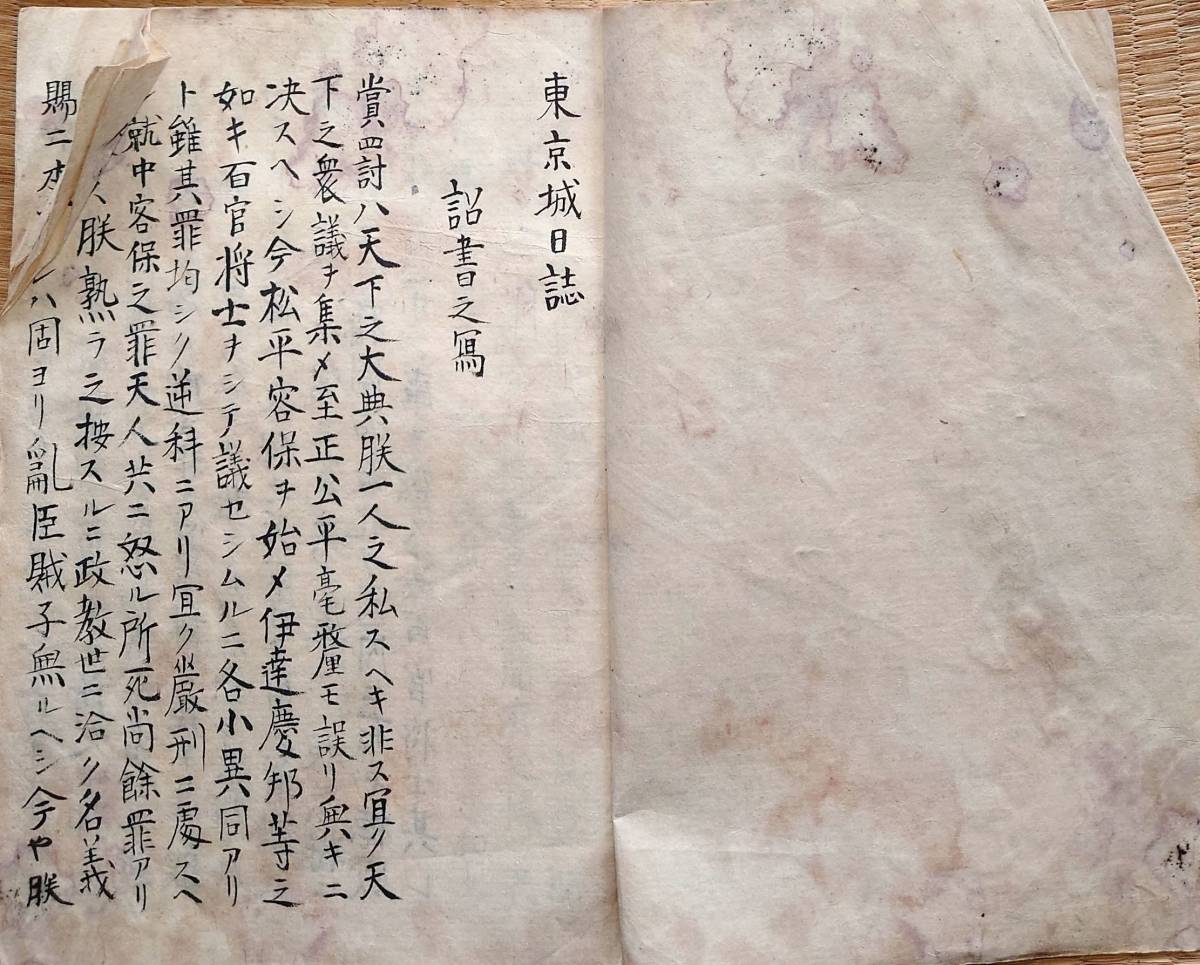 東京城日誌
詔書之寫
賞罰討ハ天下之大典朕一人之私スヘキ非ス冝ク天
下之衆議ヲ集メ至正公平毫釐モ誤リ無キニ
决スヘシ今松平容保ヲ始メ伊達慶邦等之
如キ百官将士ヲシテ議セシムルニ各小異同アリ
ト雖其罪均シク逆科ニアリ冝ク嚴刑ニ處スヘ
就中容保之罪天人共ニ怒ル所死尚餘罪アリ
人朕熟ラ之按スルニ政教世ニ洽ク名義
賜ニ ハ固ヨリ亂臣賊子無ルヘシ今や朕